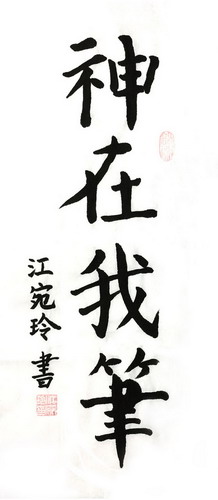 神在我筆
江宛玲書